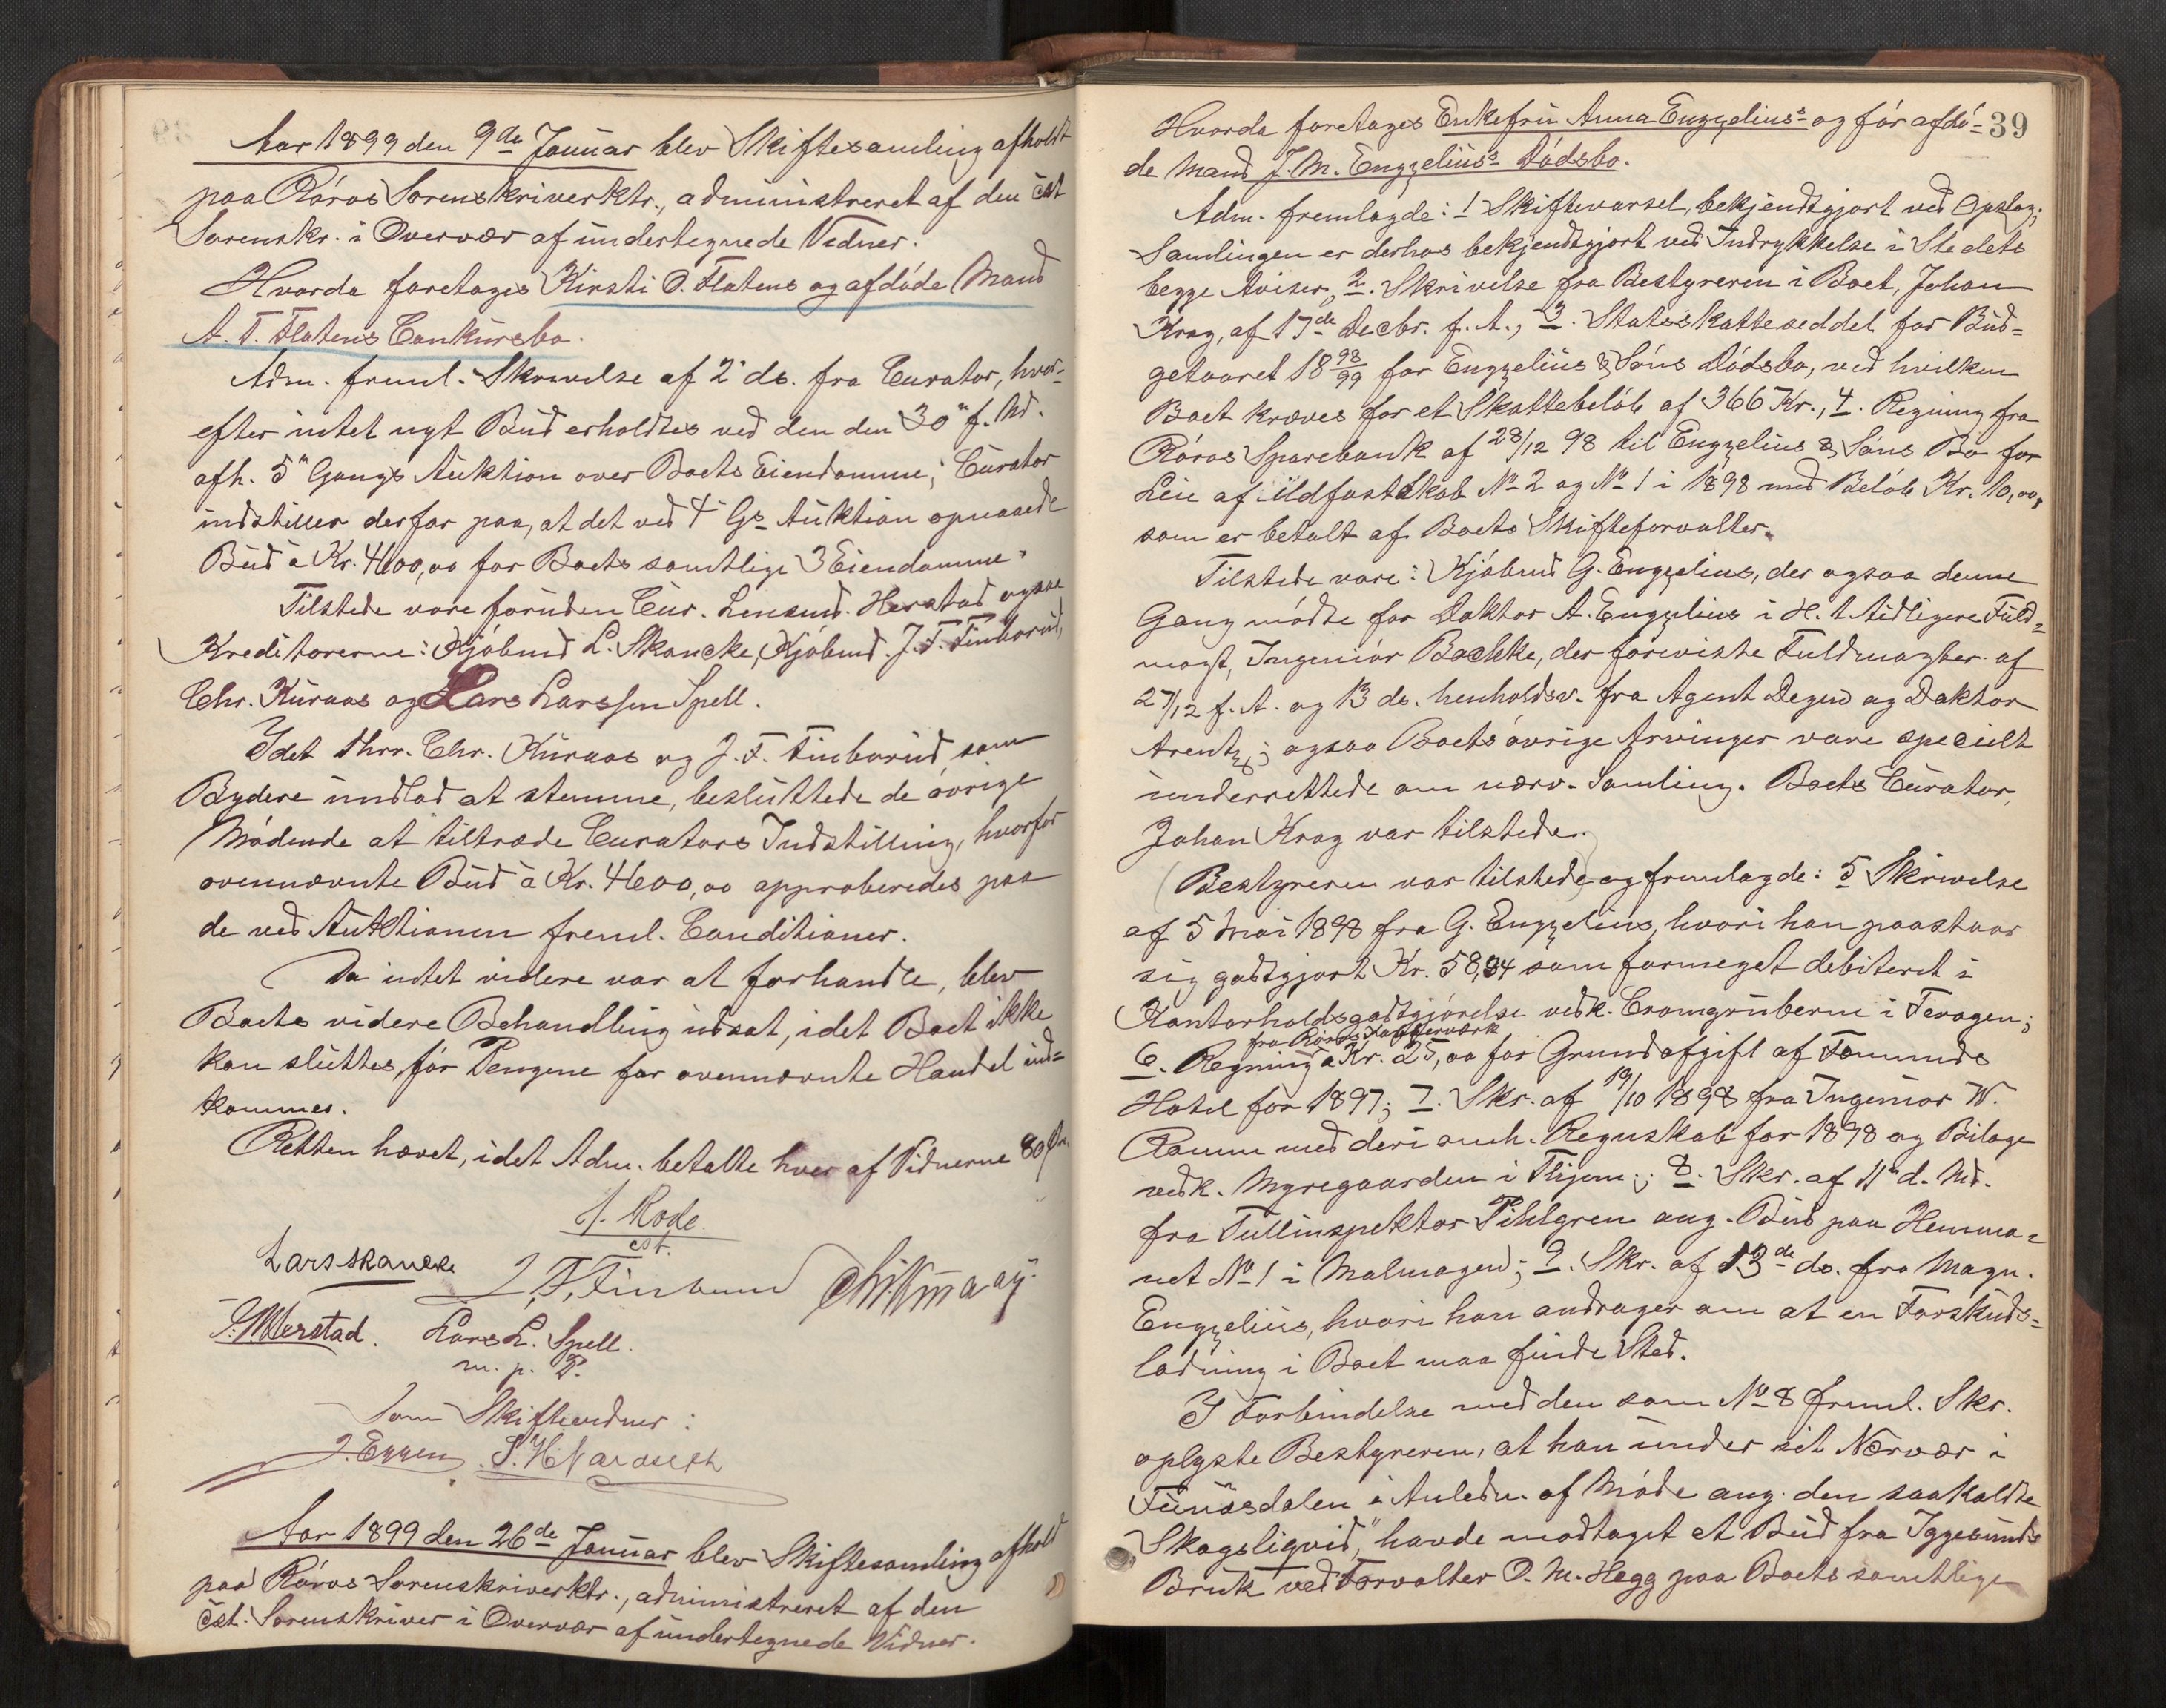 Aar 1899 den 9de Januar blev Skiftesamling afholdt
paa Röros Sorenskriverktr., administreret af den cst
Sorenskr. i Overvær af undertegnede Vidner.
Hvorda foretages Kirsti O. Flatens og afdöde Mand
A. T. Flatens Conkursbo.
Adm. freml. Skrivelse af 2' ds. fra Curator, hvor-
efter intet nyt Bud erholdtes ved den den 30" f. Md.
afh. 5" Gangs Auktion over Boets Eiendomme; Curator
indstiller derfor paa, at det ved 4' Gs Auktion opnaaede
Bud à Kr. 4600,00 for Boets samtlige 3 Eiendomme.
Tilstede vare foruden Cur. Lensmd. Herstad ogsaa
Kreditorerne: Kjöbmd L. Skancke, Kjöbmd. J. F. Finborud,
Chr. Kuraas og Lars Larssen Spell.
Idet Dhrr. Chr. Kuraas og J. F. Finborud som
Bydere undlod at stemme, besluttede de övrige
Mödende at tiltræde Curators Indstilling, hvorfor
ovennævnte Bud à Kr. 4600,00 approberedes paa
de ved Auktionen freml. Conditioner.
Da intet videre var at forhandle, blev
Boets videre Behandling udsat, idet Boet ikke
kan sluttes, för Pengene for ovennævnte Handel ind-
kommer.
Retten hævet, idet Adm. betalte hver af Vidnerne 80 Öre.
A. Rode
cst.
Lars Skancke J. F. Finborud Chr. Kuraas
Herstad. Lars L. Spell.
m. p. P.
Som Skiftevidner:
J. Eggen. S. H. Nardseth
Aar 1899 den 26de Januar blev Skiftesamling afhold
paa Röros Sorenskriverktr., administreret af den
cst. Sorenskriver i Overvær af undertegnede Vidner.
39
Hvorda foretages Enkefru Anna Engzelius's og för afdö-
de Mand J. M. Engzelius's Dödsbo.
Adm. fremlagde: 1 Skiftevarsel, bekjendtgjort ved Opslag;
Samlingen er derhos bekjendtgjort ved Indrykkelse i Stedets
begge Aviser, 2. Skrivelse fra Bestyreren i Boet, Johan
Krag, af 17de Decbr. f. A., 3. Statsskatteseddel for Bud-
getaaret 18 98/99 for Engzelius & Söns Dödsbo, ved hvilken
Boet kræves for et Skattebelöb af 366 Kr., 4. Regning fra
Röros Sparebank af 28/12 98 til Engzelius & Söns Bo for
Leie af ildfast Skab No 2 og No 1 i 1898 med Belöb Kr. 10,00,
som er betalt af Boets Skifteforvalter.
Tilstede vare: Kjöbmd G. Engzelius, der ogsaa denne
Gang mödte for Doktor A. Engzelius i H. t tidligere Fuld-
magt, Ingeniör Bachke, der foreviste Fuldmagter af
27/12 f. A. og 13 ds. henholdsv. fra Agent Degen og Doktor
Arentz; ogsaa Boets övrige Arvinger vare specielt
underrettede om nærv. Samling. Boets Curator,
Johan Krag var tilstede.
(Bestyreren var tilstede) og fremlagde: 5 Skrivelse
af 5 Mai 1898 fra G. Engzelius, hvori han paastaar
sig godtgjort Kr. 58,34 som formeget debiteret i
Kontorholdsgodtgjörelse vedk. Cromgruberne i Feragen;
fra Röros Kobberværk
6. Regning à Kr. 25,00 for Grundafgift af Fæmunds
Hotel for 1897; 7. Skr. af 19/10 1898 fra Ingeniör W.
Ramm med deri anh. Regnskab for 1898 og Bilage
vedk. Myregaarden i Thjem; 8. Skr. af 11" d. Md.
fra Tullinspektor Pihlgren ang. Bud paa Hemma-
net No 1 i Malmagen; 9. Skr. af 13de ds. fra Magn.
Engzelius, hvori han andrager om at en Forskuds-
lodning i Boet maa finde Sted.
I Forbindelse med den som No 8 freml. Skr.
oplyste Bestyreren, at han under sit Nærvær i
Funäsdalen i Anledn. af Möde ang. den saakaldte
"Skogsliqvid," havde modtaget et Bud fra Iggesunds
Bruk ved Forvalter O. M. Hegg paa Boets samtlige